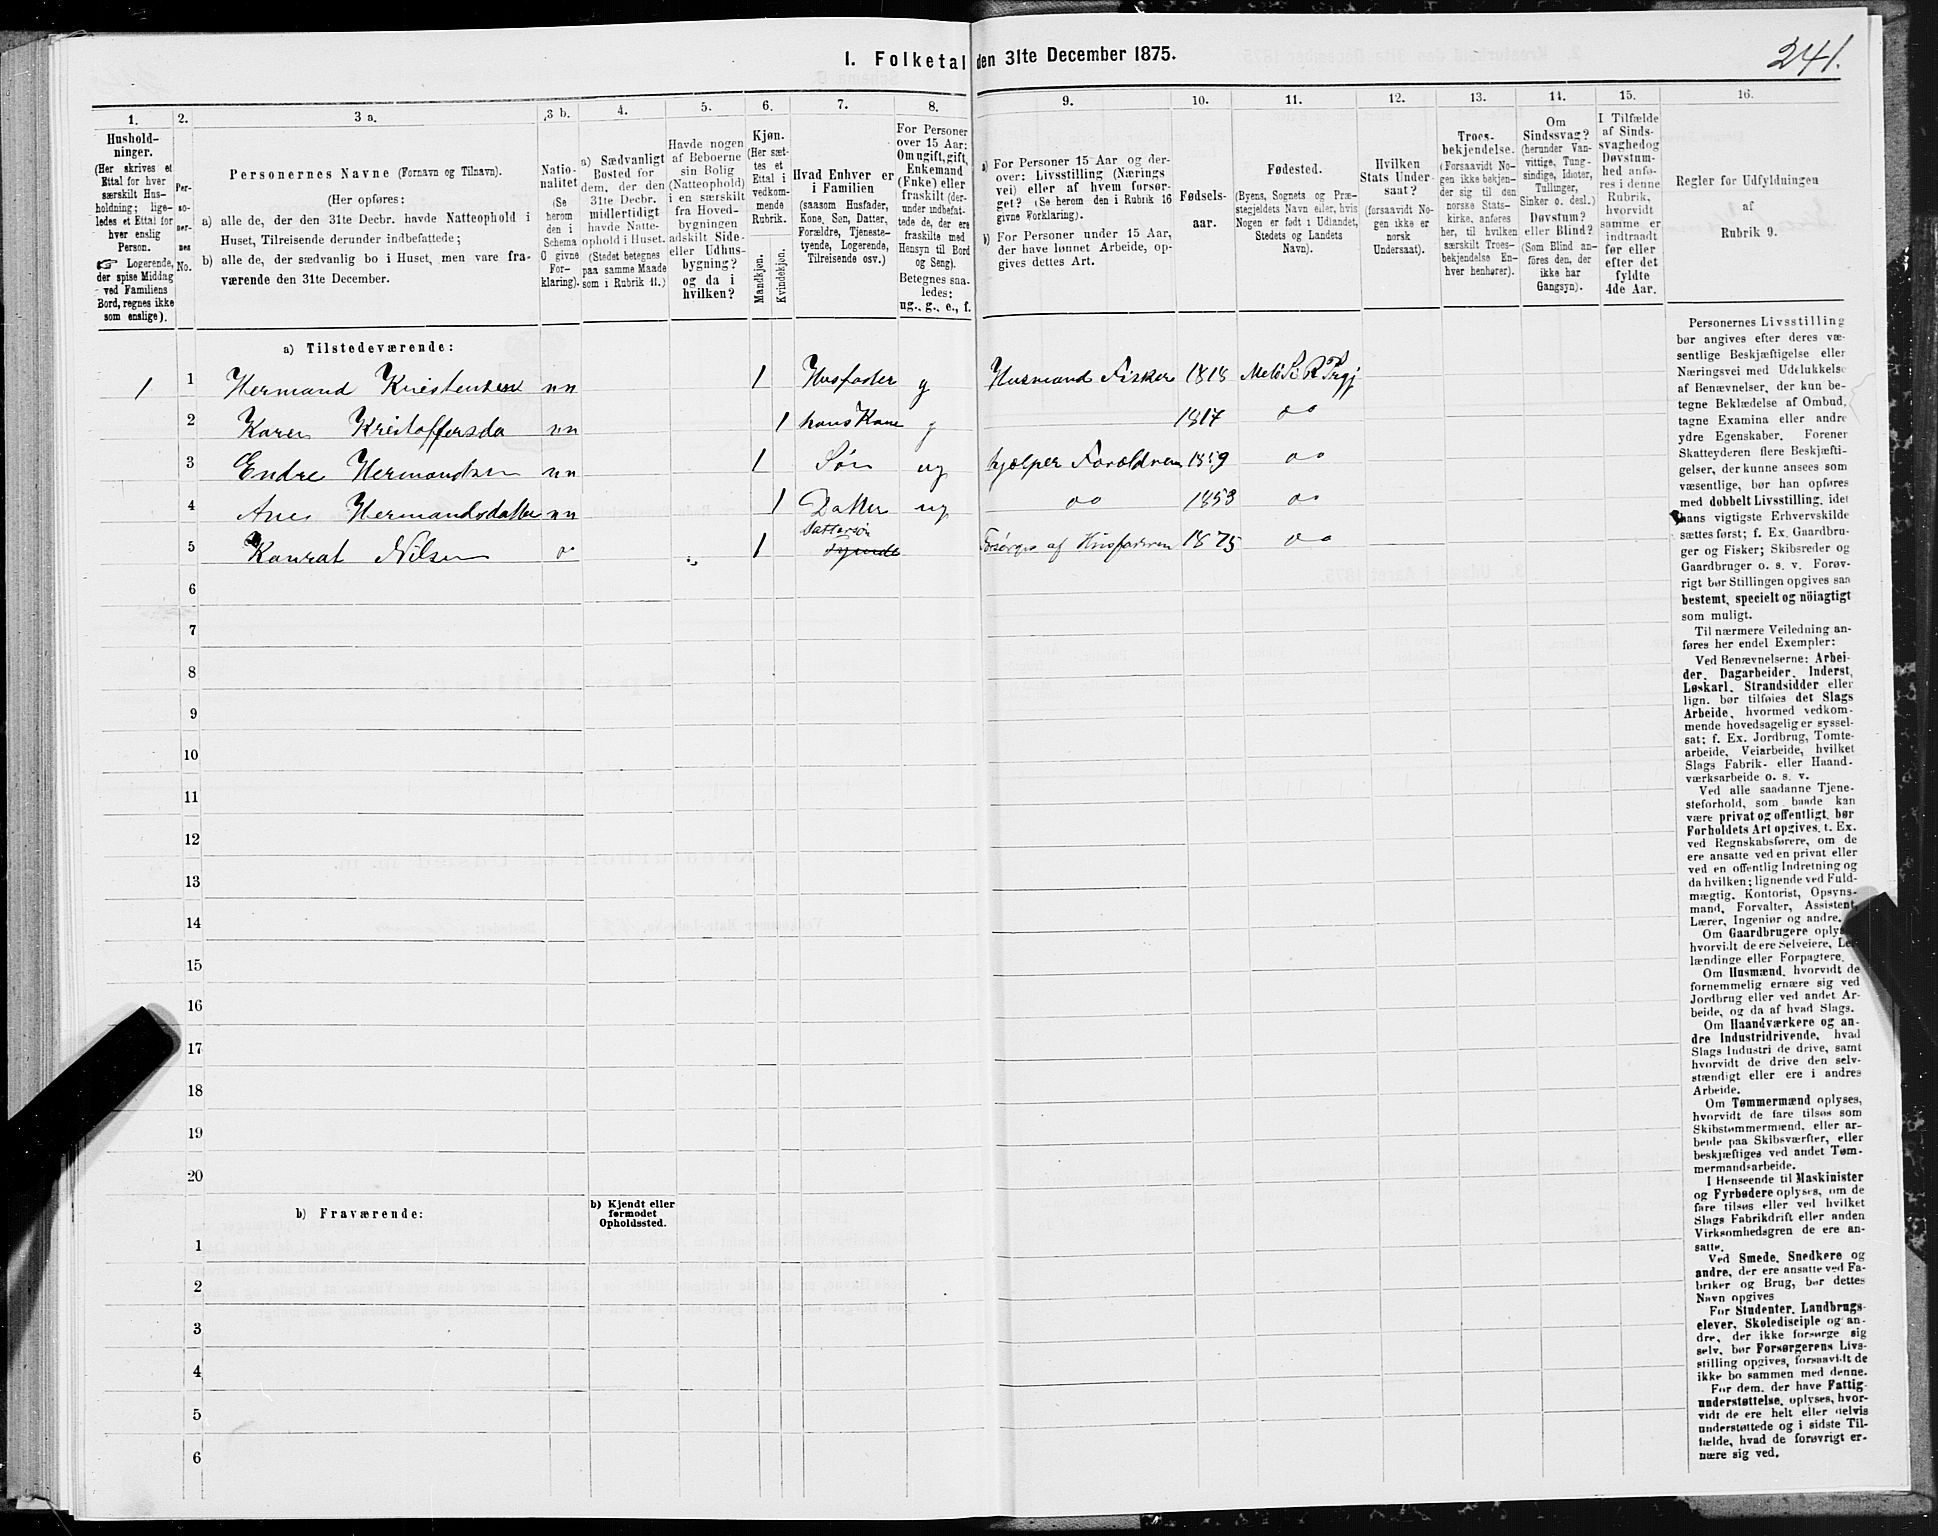 I. Folketal den 31te December 1875.
241.
1.
Hushold-
ninger.
(Her skrives et
Ettal for hver
særskilt Hus-
holdning; lige-
ledes et Ettal for
hver enslig
Person.
☞ Logerende,
der spise Middag
ved Familiens
Bord, regnes ikke
som enslige).
2.
Per-
so-
ner-
nes
No.
3 a.
Personernes Navne (Fornavn og Tilnavn).
(Her opføres:
a) alle de, der den 31te Decbr. havde Natteophold i
Huset, Tilreisende derunder indbefattede;
b) alle de, der sædvanlig bo i Huset, men vare fra-
værende den 31te December.
3 b.
Natio-
nalitet
(Se
herom
den i
Schema
O givne
For-
klaring).
4.
a) Sædvanligt
Bosted for
dem, der den
31te Decbr.
midlertidigt
havde Natte-
ophold i Huset.
(Stedet betegnes
paa samme Maade
som i Rubrik 11.)
5.
Havde nogen
af Beboerne
sin Bolig
(Natteophold)
i en særskilt
fra Hoved-
bygningen
adskilt Side-
eller Udhus-
bygning?
og da i
hvilken?
6.
Kjøn.
(Her sæt-
tes et
Ettal i
vedkom-
mende
Rubrik.
Mandkjøn.
Kvindekjøn.
7.
Hvad Enhver er
i Familien
(saasom Husfader,
Kone, Søn, Datter,
Forældre, Tjeneste-
tyende, Logerende,
Tilreisende osv.)
8.
For Personer
over 15 Aar:
Om ugift, gift,
Enkemand
(Enke) eller
fraskilt (der-
under indbefat-
tede de, der ere
fraskilte med
Hensyn til Bord
og Seng).
Betegnes saa-
ledes:
ug., g., e., f.
9.
a) For Personer 15 Aar og der-
over: Livsstilling (Nærings-
vei) eller af hvem forsør-
get? (Se herom den i Rubrik 16
givne Forklaring).
b) For Personer under 15 Aar,
der have lønnet Arbeide, op-
gives dettes Art.
10.
Fødsels-
aar.
11.
Fødested.
(Byens, Sognets og Præ-
stegjeldets Navn eller, hvis
Nogen er født i Udlandet,
Stedets og Landets
Navn).
12.
Hvilken
Stats Under-
saat?
(forsaavidt No-
gen ikke er
norsk
Undersaat).
13.
Troes-
bekjendelse.
(Forsaavidt No-
gen ikke bekjen-
der sig til den
norske Stats-
kirke, anføres
her, til hvilken
særskilt Troes-
bekjendelse En-
hver henhører).
14.
Om
Sindssvag?
(herunder Van-
vittige, Tung-
sindige, Idioter,
Tullinger,
Sinker o. desl.)
Døvstum?
eller Blind?
(Som Blind an-
føres den, der
ikke har
Gangsyn).
15.
I Tilfælde
af Sinds-
svaghed og
Døvstum-
hed anfø-
res i denne
Rubrik,
hvorvidt
samme er
indtraadt
før eller
efter det
fyldte
4de Aar.
16.
Regler for Udfyldningen
af
Rubrik 9.
a) Tilstedeværende:
1 1 Hermand Kristensen nn 1 Husfader g Husmand Fisker 1818
2 Karen Kristoffersda nn 1 hans Kone g 1817 oo
3 Endre Hermandsen nn 1 Søn ug hjælper Forældrene oo
4 Ane Hermandsdatter nn 1 Datter ug oo 1853 oo
Dattersøn
5 Konrat Nilsen oo 1 Forsørges af Husfaderen 1875 oo
6
7
8
9
10
11
12
13
14
15
16
17
18
19
20
b) Fraværende:
b) Kjendt eller
formodet
Opholdssted.
1
2
3
4
5
6
Personernes Livsstilling
bør angives efter deres væ-
sentlige Beskjæftigelse eller
Næringsvei med Udelukkelse
af Benævnelser, der kun be-
tegne Beklædelse af Ombud,
tagne Examina eller andre
ydre Egenskaber. Forener
Skatteyderen flere Beskjæfti-
gelser, der kunne ansees som
væsentlige, bør han opføres
med dobbelt Livsstilling, idet
hans vigtigste Erhvervskilde
sættes først; f. Ex. Gaardbru-
ger og Fisker; Skibsreder og
Gaardbruger o. s. v. Forøv-
rigt bør Stillingen opgives saa
bestemt, specielt og nöiagtigt
som muligt.
Til nærmere Veiledning an-
føres her endel Exempler:
Ved Benævnelserne: Arbei-
der, Dagarbeider, Inderst,
Løskarl, Strandsidder eller
lign. bør tilføies det Slags
Arbeide, hvormed vedkom-
mende hovedsagelig er syssel-
sat; f. Ex. Jordbrug, Tomte-
arbeide, Veiarbeide, hvilket
Slags Fabrik- eller Haand-
værksarbeide o. s. v.
Ved alle saadanne Tjene-
steforhold, som baade kan
være privat og offentligt, bør
Forholdets Art opgives, t. Ex.
ved Regnskabsførere, om de
ere ansatte ved en privat eller
ved en offentlig Indretning og
da hvilken; lignende ved Fuld-
mægtig, Kontorist, Opsyns-
mand, Forvalter, Assistent,
Lærer, Ingeniør og andre.
Om Gaardbrugere oplyses,
hvorvidt de ere Selveiere, Lei-
lændinge eller Forpagtere.
Om Husmænd, hvorvidt de
fornemmelig ernære sig ved
Jordbrug eller ved andet Ar-
beide, og da af hvad Slags.
Om Haandværkere og an-
dre Industridrivende, hvad
Slags Industri de drive, samt
hvorvidt de drive den selv-
stændigt eller ere i andres
Arbeide.
Om Tømmermænd oplyses,
hvorvidt de fare tilsøs som
Skibstømmermænd, eller ar-
beide paa Skibsværfter, eller
beskjæftiges ved andet Tøm-
mermandsarbeide.
I Henseende til Maskinister
og Fyrbødere oplyses, om de
fare tilsøs eller ved hvilket
Slags Fabrikdrift eller anden
Virksomhedsgren de ere an-
satte.
Ved Smede, Snedkere og
andre, der ere ansatte ved Fa-
briker og Brug, bør dettes
Navn opgives
For Studenter, Landbrugs-
elever, Skoledisciple og an-
dre, der ikke forsørge sig
selv, bør Forsørgerens Livs-
stilling opgives, forsaavidt de
ikke bo sammen med denne.
For dem, der have Fattig-
understøttelse, oplyses, hvor-
vidt de ere helt eller delvis
understøttede og i sidste Til-
fælde, hvad de forøvrigt er-
nære sig ved.